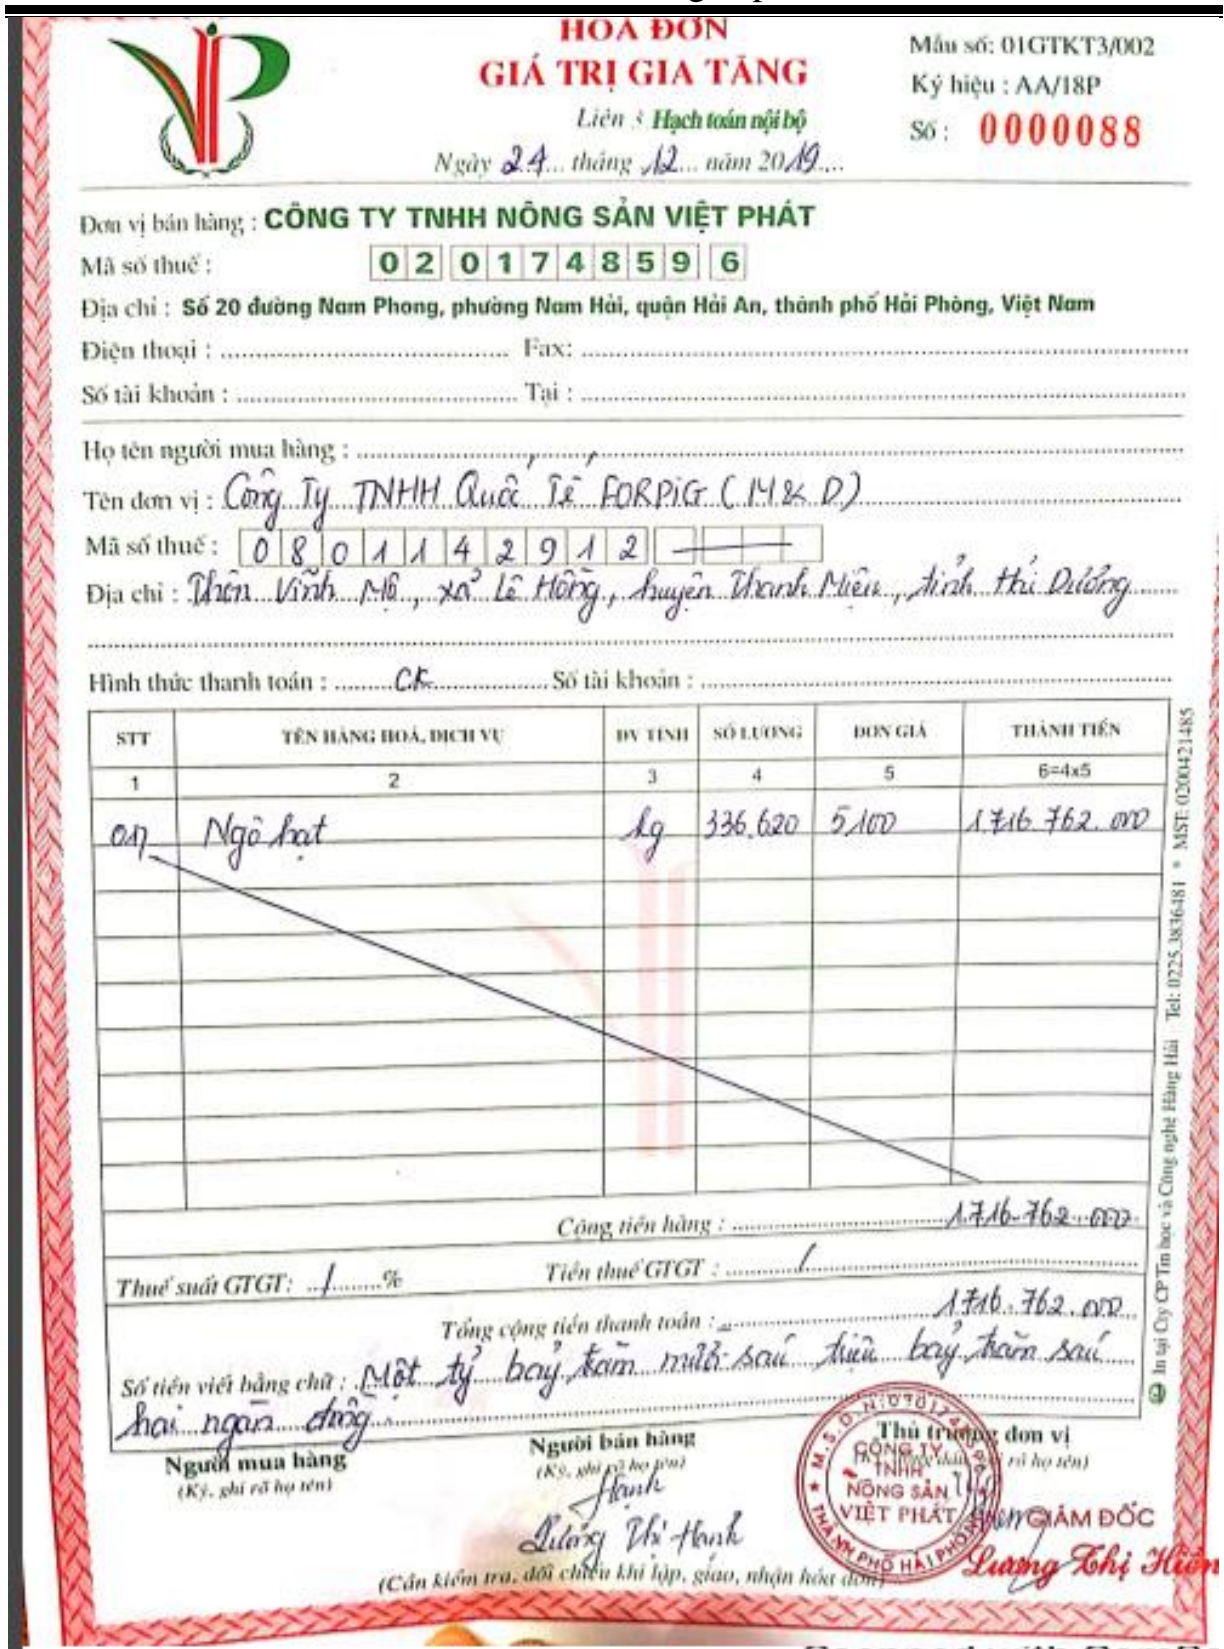 HOÁ ĐƠN
GIÁ TRỊ GIA TĂNG
Liên 3 Hạch toán nội bộ
Ngày 24 tháng 12 năm 2019
Mẫu số: 01GTKT3/002
Ký hiệu : AA/18P
Số : 0000088
Đơn vị bán hàng : CÔNG TY TNHH NÔNG SẢN VIỆT PHÁT
Mã số thuế : 0201748596
Địa chỉ : Số 20 đường Nam Phong, phường Nam Hải, quận Hải An, thành phố Hải Phòng, Việt Nam
Điện thoại : Fax:
Số tài khoản : Tại :
Họ tên người mua hàng :
Tên đơn vị : Công Ty TNHH Quốc Tế FORPIG (M & D)
Mã số thuế : 0801142912
Địa chỉ : Thôn Vĩnh Mộ, xã Lê Hồng, huyện Thanh Miện, tỉnh Hải Dương
Hình thức thanh toán : CK Số tài khoản :
STT TÊN HÀNG HOÁ, DỊCH VỤ ĐV TÍNH SỐ LƯỢNG ĐƠN GIÁ THÀNH TIỀN
1 2 3 4 5 6=4x5
01 Ngô hạt kg 336.620 5.100 1.716.762.000
Cộng tiền hàng : 1.716.762.000
Thuế suất GTGT: / % Tiền thuế GTGT : /
Tổng cộng tiền thanh toán : 1.716.762.000
Số tiền viết bằng chữ : Một tỷ bảy trăm mười sáu triệu bảy trăm sáu
hai ngàn đồng.
Người mua hàng Người bán hàng Thủ trưởng đơn vị
(Ký, ghi rõ họ tên) (Ký, ghi rõ họ tên) rõ họ tên)
Hạnh
Lương Thị Hạnh
CÔNG TY
TNHH
NÔNG SẢN
VIỆT PHÁT
THÀNH PHỐ HẢI PHÒNG
GIÁM ĐỐC
Lương Thị Hiền
(Cần kiểm tra, đối chiếu khi lập, giao, nhận hóa đơn)
In tại Cty CP Tin học và Công nghệ Hàng Hải Tel: 0225.3836481 * MST: 0200421485